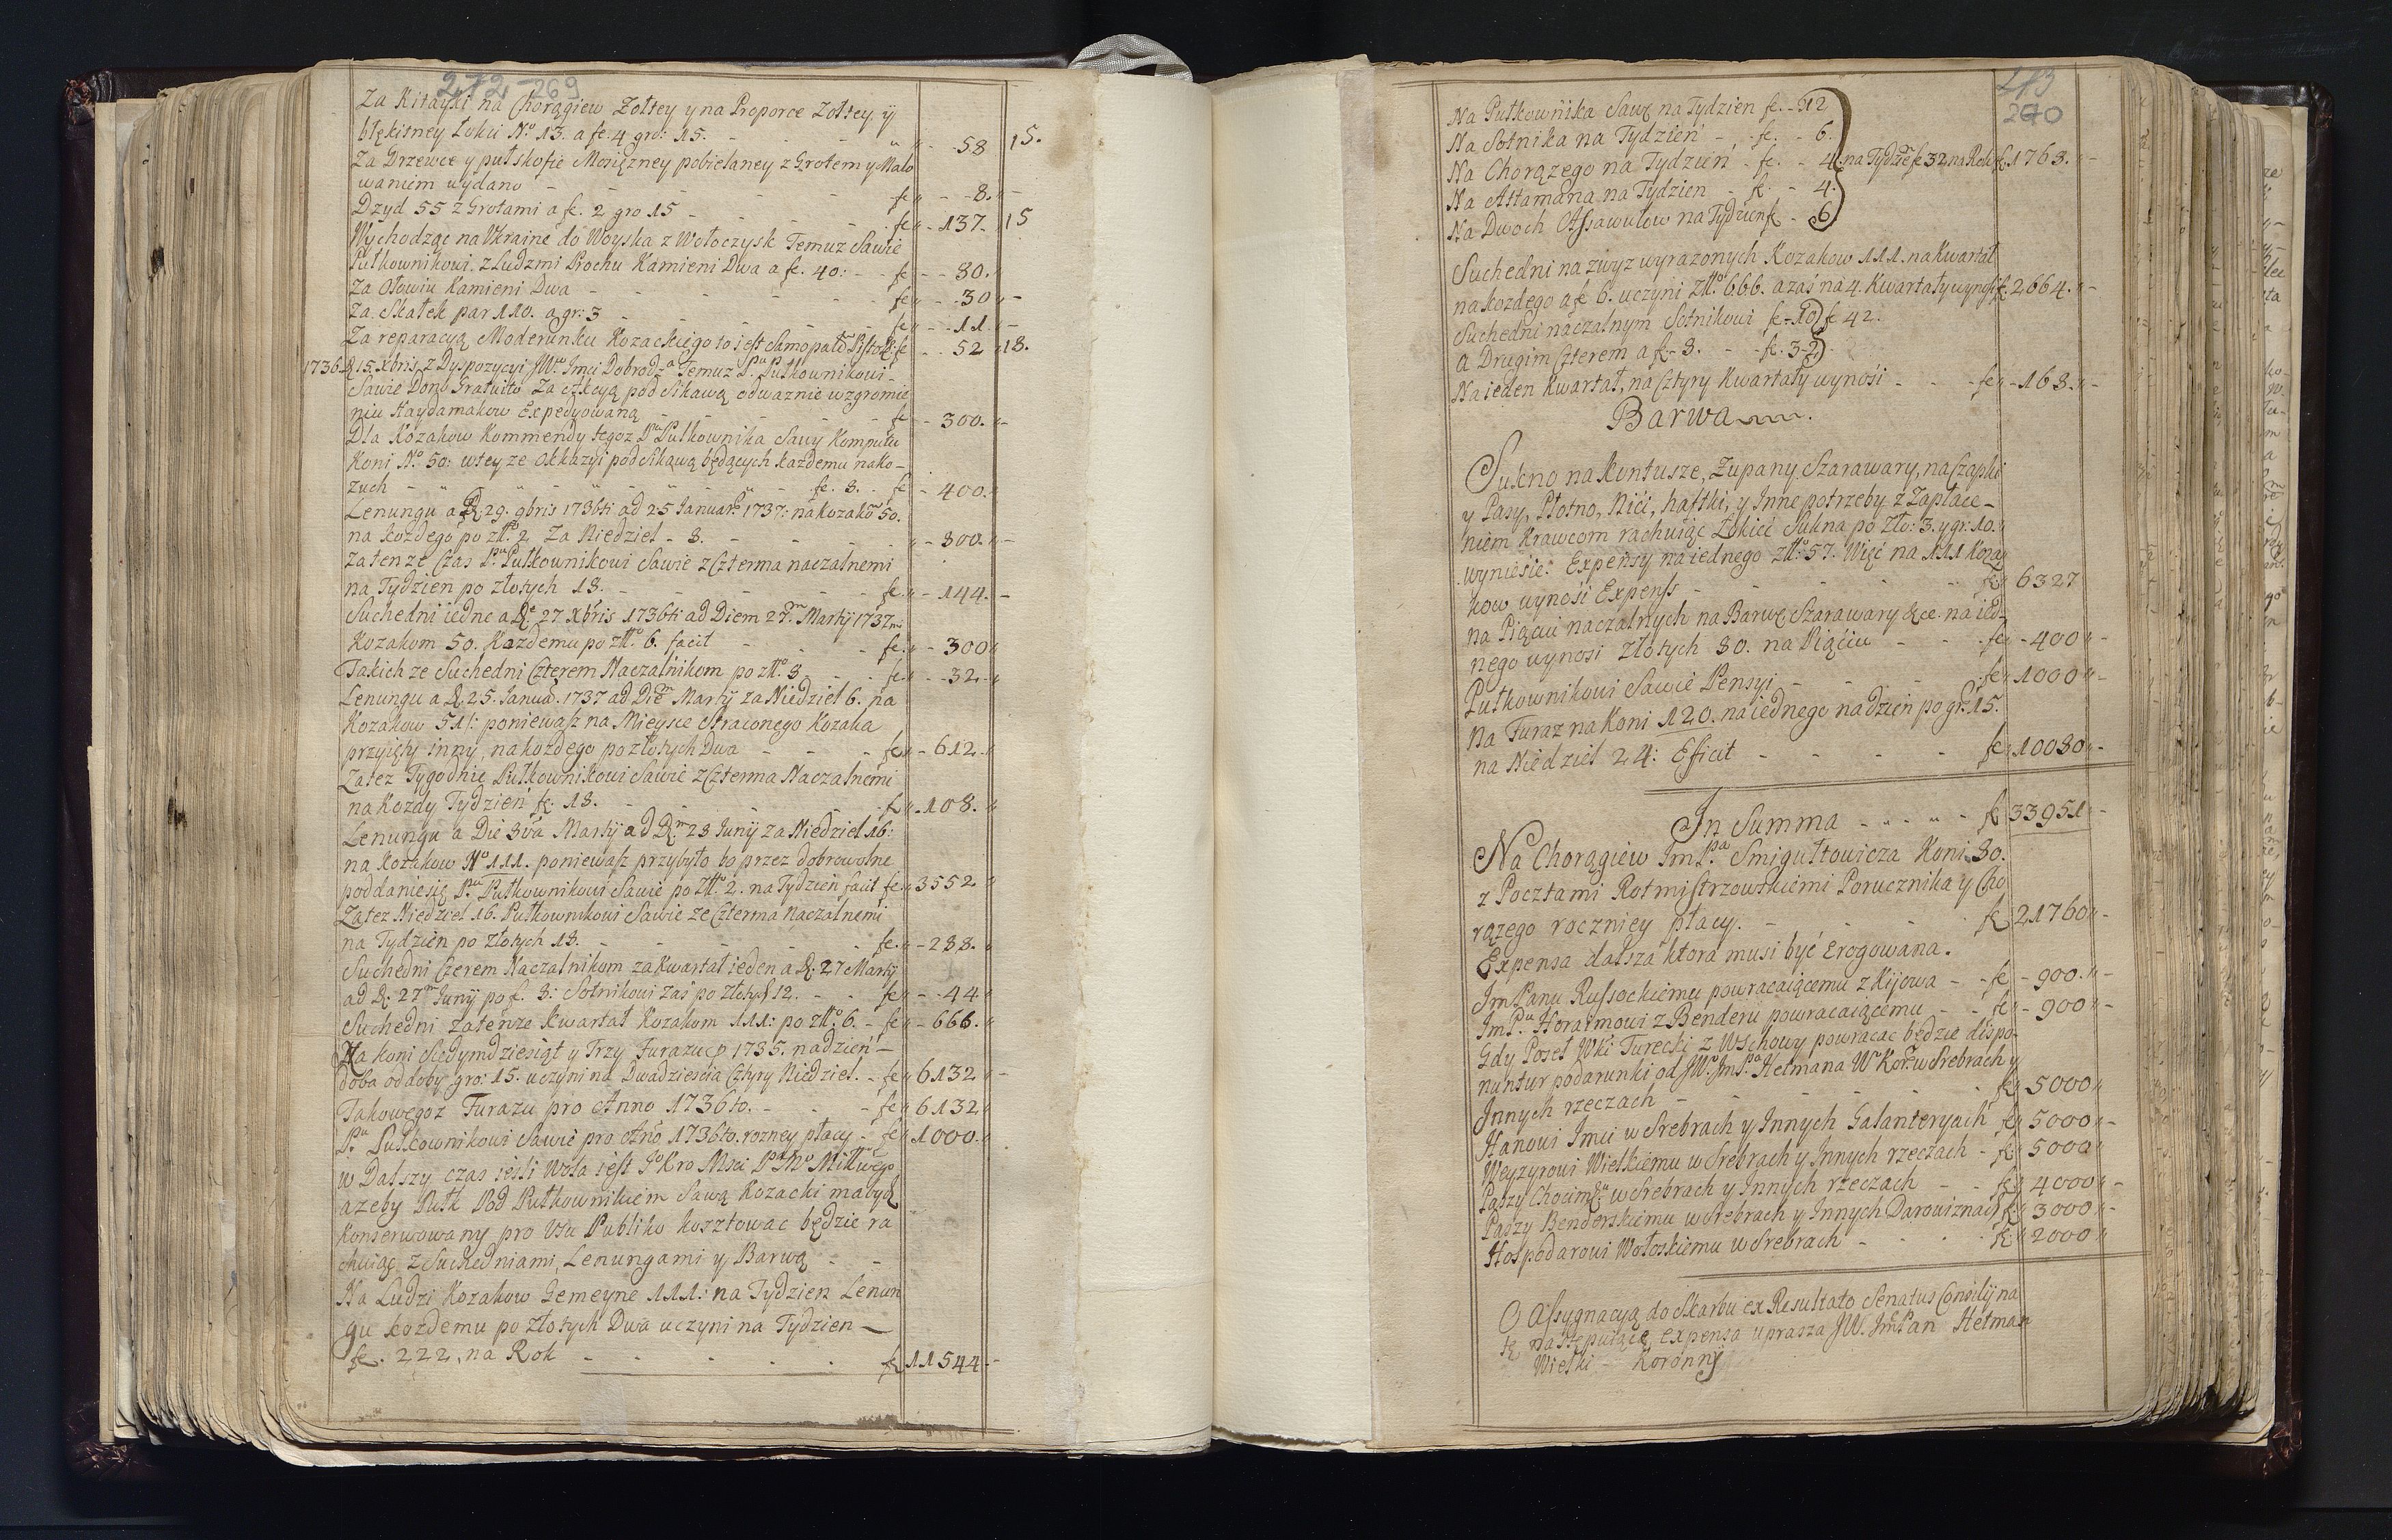 272 269
Za Kitayki na Chorągiew Zołtey y na Proporce Zołtey ÿ
błękitney Łokci No 13. a fe. 4 gro: 15. - - - 58 | 15.
Za Drzewce y puł skofie Mosiężney pobielaney z Grotem y Malo
waniem wydano - - - - fe - 8. -
Dzyd 55 z Grotami a fe. 2 gro 15 - - - fe - 137. | 15
Wychodząc na Ukrainę do Woyska z Wołoczysk Temuz Sawie
Pułkownikowi z Ludzmi Prochu Kamieni Dwa a fe. 40: - - fe - 80.
Za Ołowiu Kamieni Dwa - - - - fe - 30 -
Za Skałek par 110. a gr: 3 - - - - fe - 11. -
Za reparacyą Moderunku Kozackiego to iest Samopałō Pistolē fe - 52 | 18.
1736 D 15 Xbris z Dyspozycyi JWo Imci Dobrodza Temuz Pu Pułkownikowi -
Sawie Dono Gratuito Za exkcyą pod Sikawą odwaznie w zgromie
niu Haydamakow Expedyowaną - - - fe - 300. -
Dla Kozakow Kommendy tegoz Pu Pułkownika Sawy Komputu
Koni No 50: w tey ze Okkazyi pod Sikawą będących kazdemu na Ko-
zuch - - - - - fe. 8. - fe - 400.
Lenungu a D: 29. 9bris 1736ti ad 25 Januar: 1737: na Kozakō 50.
na kozdego po zło. 2. Za Niedziel - 8. - - - 800. -
Za ten ze Czas Pu Pułkownikowi Sawie z Czterma naczalnemi
na Tydzien po złotych 18. - - - - fe. - 144. -
Suchedni iedne a De 27 Xbris 1736ti ad Diem 27m Martÿ 1737mi
Kozakom 50. Kazdemu po zło. 6. facit - - - fe. - 300
Takich ze Suchedni Czterem Naczalnikom po zło. 8 - - fe. - 32.
Lenungu a D. 25. Januar. 1737 ad Diem Martÿ za Niedziel 6. na
Kozakow 51: poniewasz na Mieysce Straconego Kozaka
przyięty inny, na kozdego po złotych Dwa - - - fe - 612.
Za tez Tygodnie Pułkownikowi Sawie z Czterma Naczalnemi
na Kozdy Tydzien fe. 18. - - - - fe - 108.
Lenungu a Die 8va Martÿ ad Dm 28 Junÿ za Niedziel 16:
na Kozakow No 111. poniewasz przybyło bo przez dobrowolne
poddanie się Pu Pułkownikowi Sawie po zło. 2. na Tydzien facit fe 3552
Za tez Niedziel 16. Pułkownikowi Sawie ze Czterma Naczalnemi
na Tydzien po złotych 18. - - - - fe. - 288.
Suchedni Czterem Naczalnikom za Kwartał ieden a D: 27 Martÿ
ad D: 27m Junÿ po f. 8: Sotnikowi zas po złotych 12. - - fe - 44.
Suchedni za tenze Kwartał Kozakom 111: po zło. 6. - fe - 666.
Na koni Siedymdziesiąt y Trzy Furazu p 1735. na dzien -
doba od doby gro: 15. uczyni na Dwadziescia Cztyry Niedziel. - fe 6132 -
Takowegoz Furazu pro Anno 1736to. - - - fe 6132
Pu Pułkownikowi Sawie pro Anō 1736to. rozney płacy - fe 1000.
w Dalszy czas iesli wola iest Jo Kro Msci Pa Mo Miłłwego
azeby Pułk Pod Pułkownikiem Sawą Kozacki ma bydz
Konserwowany pro Usu Publiko kosztowac będzie ra
chuiąc z Suchedniami, Lenungami y Barwą - -
Na Ludzi Kozakow Gemeyne 111: na Tydzien Lenun
gu kozdemu po złotych Dwa uczyni na Tydzien -
fe. 222. na Rok - - - - - fe 11544 -
273
270
Na Pułkownika Sawę na Tydzien fe. - 12
Na Sotnika na Tydzień - - fe. - 6.
Na Chorązego na Tydzień - fe. - 4. na Tydzē fe 32 na Rok fe. 1768. -
Na Attamana na Tydzien - fe. - 4.
Na Dwoch Assawułow na Tydzien fe - 6
Suchedni na zwyz wyrazonych Kozakow 111. na Kwartał
na kozdego a fe 6. uczyni zło. 666. a zas na 4. Kwartały wynosi fe. 2664. -
Suchedni naczalnym Sotnikowi fe - 10 fe 42.
a Drugim Czterem a fe - 8. - - fe. 32
Na ieden Kwartał, na Cztyry Kwartały wynosi - - - fe - 168. -
Barwa.
Sukno na Kontusze, Zupany, Szarawary, na Czapki
y Pasy, Płotno, Nici, haftki, y Inne potrzeby z Zapłace-
niem Krawcom rachuiąc Łokieć Sukna po Zło: 3. y gr: 10.
wyniesie Expensy na iednego zło: 57. Więc na 111 Koza
kow wynosi Expens - - - - fe 6327
na Pięciu naczalnych na Barwę Szarawary &ce na ied-
nego wynosi złotych 80. na Pięciu - - - fe - 400 -
Pułkownikowi Sawie Pensyi - - - - fe 1000 -
Na Furaz na Koni 120. na iednego na dzien po gr: 15.
na Niedziel 24: Eficit - - - - fe 10080 -
In Summa - - - - fe 33951 -
Na Chorągiew JmPa Smigułtowicza Koni 80.
z Pocztami Rotmistrzowskiemi Porucznika y Cho
rązego roczniey płacy. - - - - fe 21760 -
Expensa dalsza ktora musi być Erogowana.
JmPanu Russockiemu powracaiącemu z Kijowa - - fe - 900. -
JmPu Horaimowi z Benderu powracaiącemu - - fe - 900 -
Gdy Poseł Wki Turecki z Wschowy powracac będzie dispo-
nuntur podarunki od JWo JmPa Hetmana W Kor: w Srebrach y
Innych rzeczach - - - - - fe 5000
Hanowi Imci w Srebrach y Innych Galanteryach fe 5000 -
Weyzyrowi Wielkiemu w Srebrach y Innych rzeczach - fe 5000
Paszy Chocimsu w Srebrach y Innych rzeczach - - fe 4000 -
Paszy Benderskiemu w Srebrach y Innych Darowiznach fe 3000 -
Hospodarowi Wołoskiemu w Srebrach - - - fe 2000
O Assygnacyą do Skarbu ex Resultato Senatus Consilÿ na
tę następuiącą expensa uprasza JW. JmPan Hetman
Wielki Koronnÿ